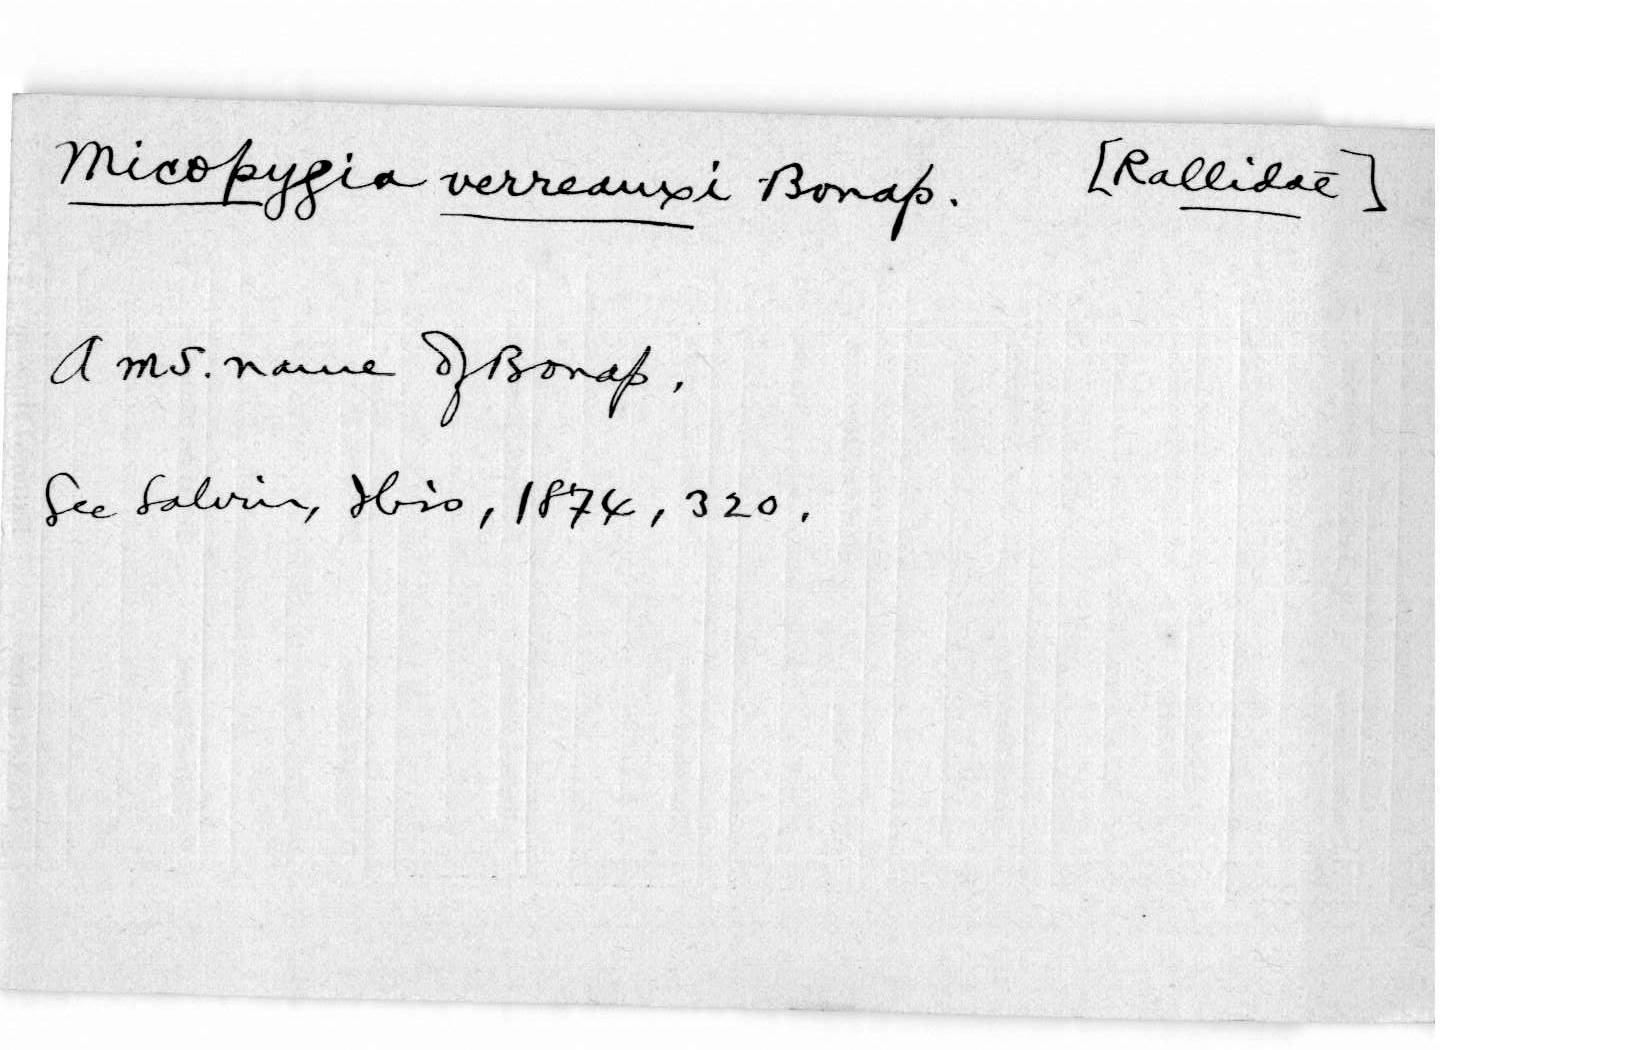 Micopygia verreauxi Bonap. [Rallidae]
A ms. name of Bonap.
See Salvin, Ibis, 1874, 320.